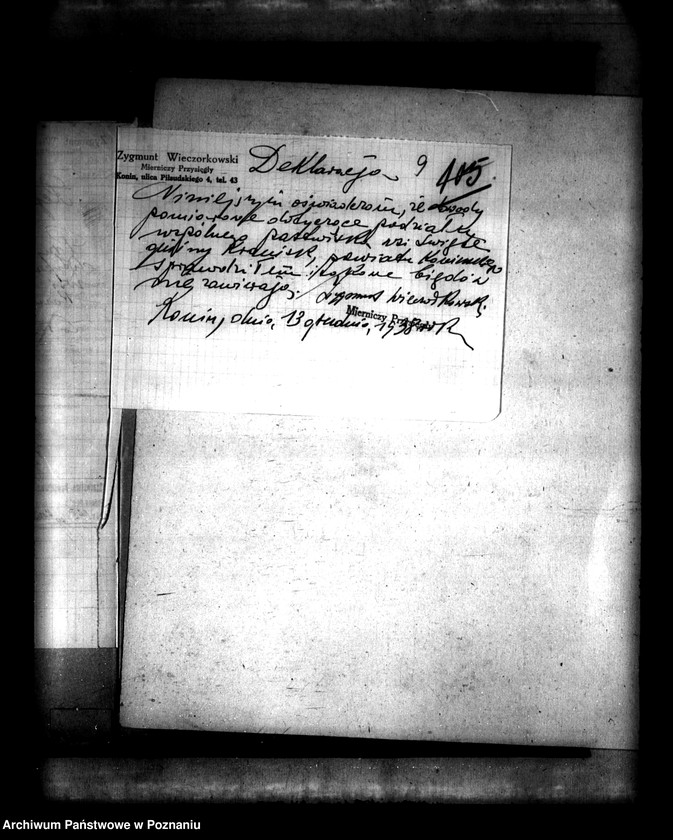 Zygmunt Wieczorkowski
Mierniczy Przysięgły
Konin, ulica Piłsudskiego 4, tel. 43
Deklaracja 9 405.
Niniejszym oświadczam, że dowody
pomiarowe dotyczące podziału
wspólnego pastwiska wsi Święte
gminy Kramsk, powiatu Konińskiego
sprawdziłem i żadne błędów
nie zawierają. Zygmunt Wieczorkowski
Mierniczy Przysięgły
Konin, dnia, 13 grudnia, 193 r
Archiwum Państwowe w Poznaniu